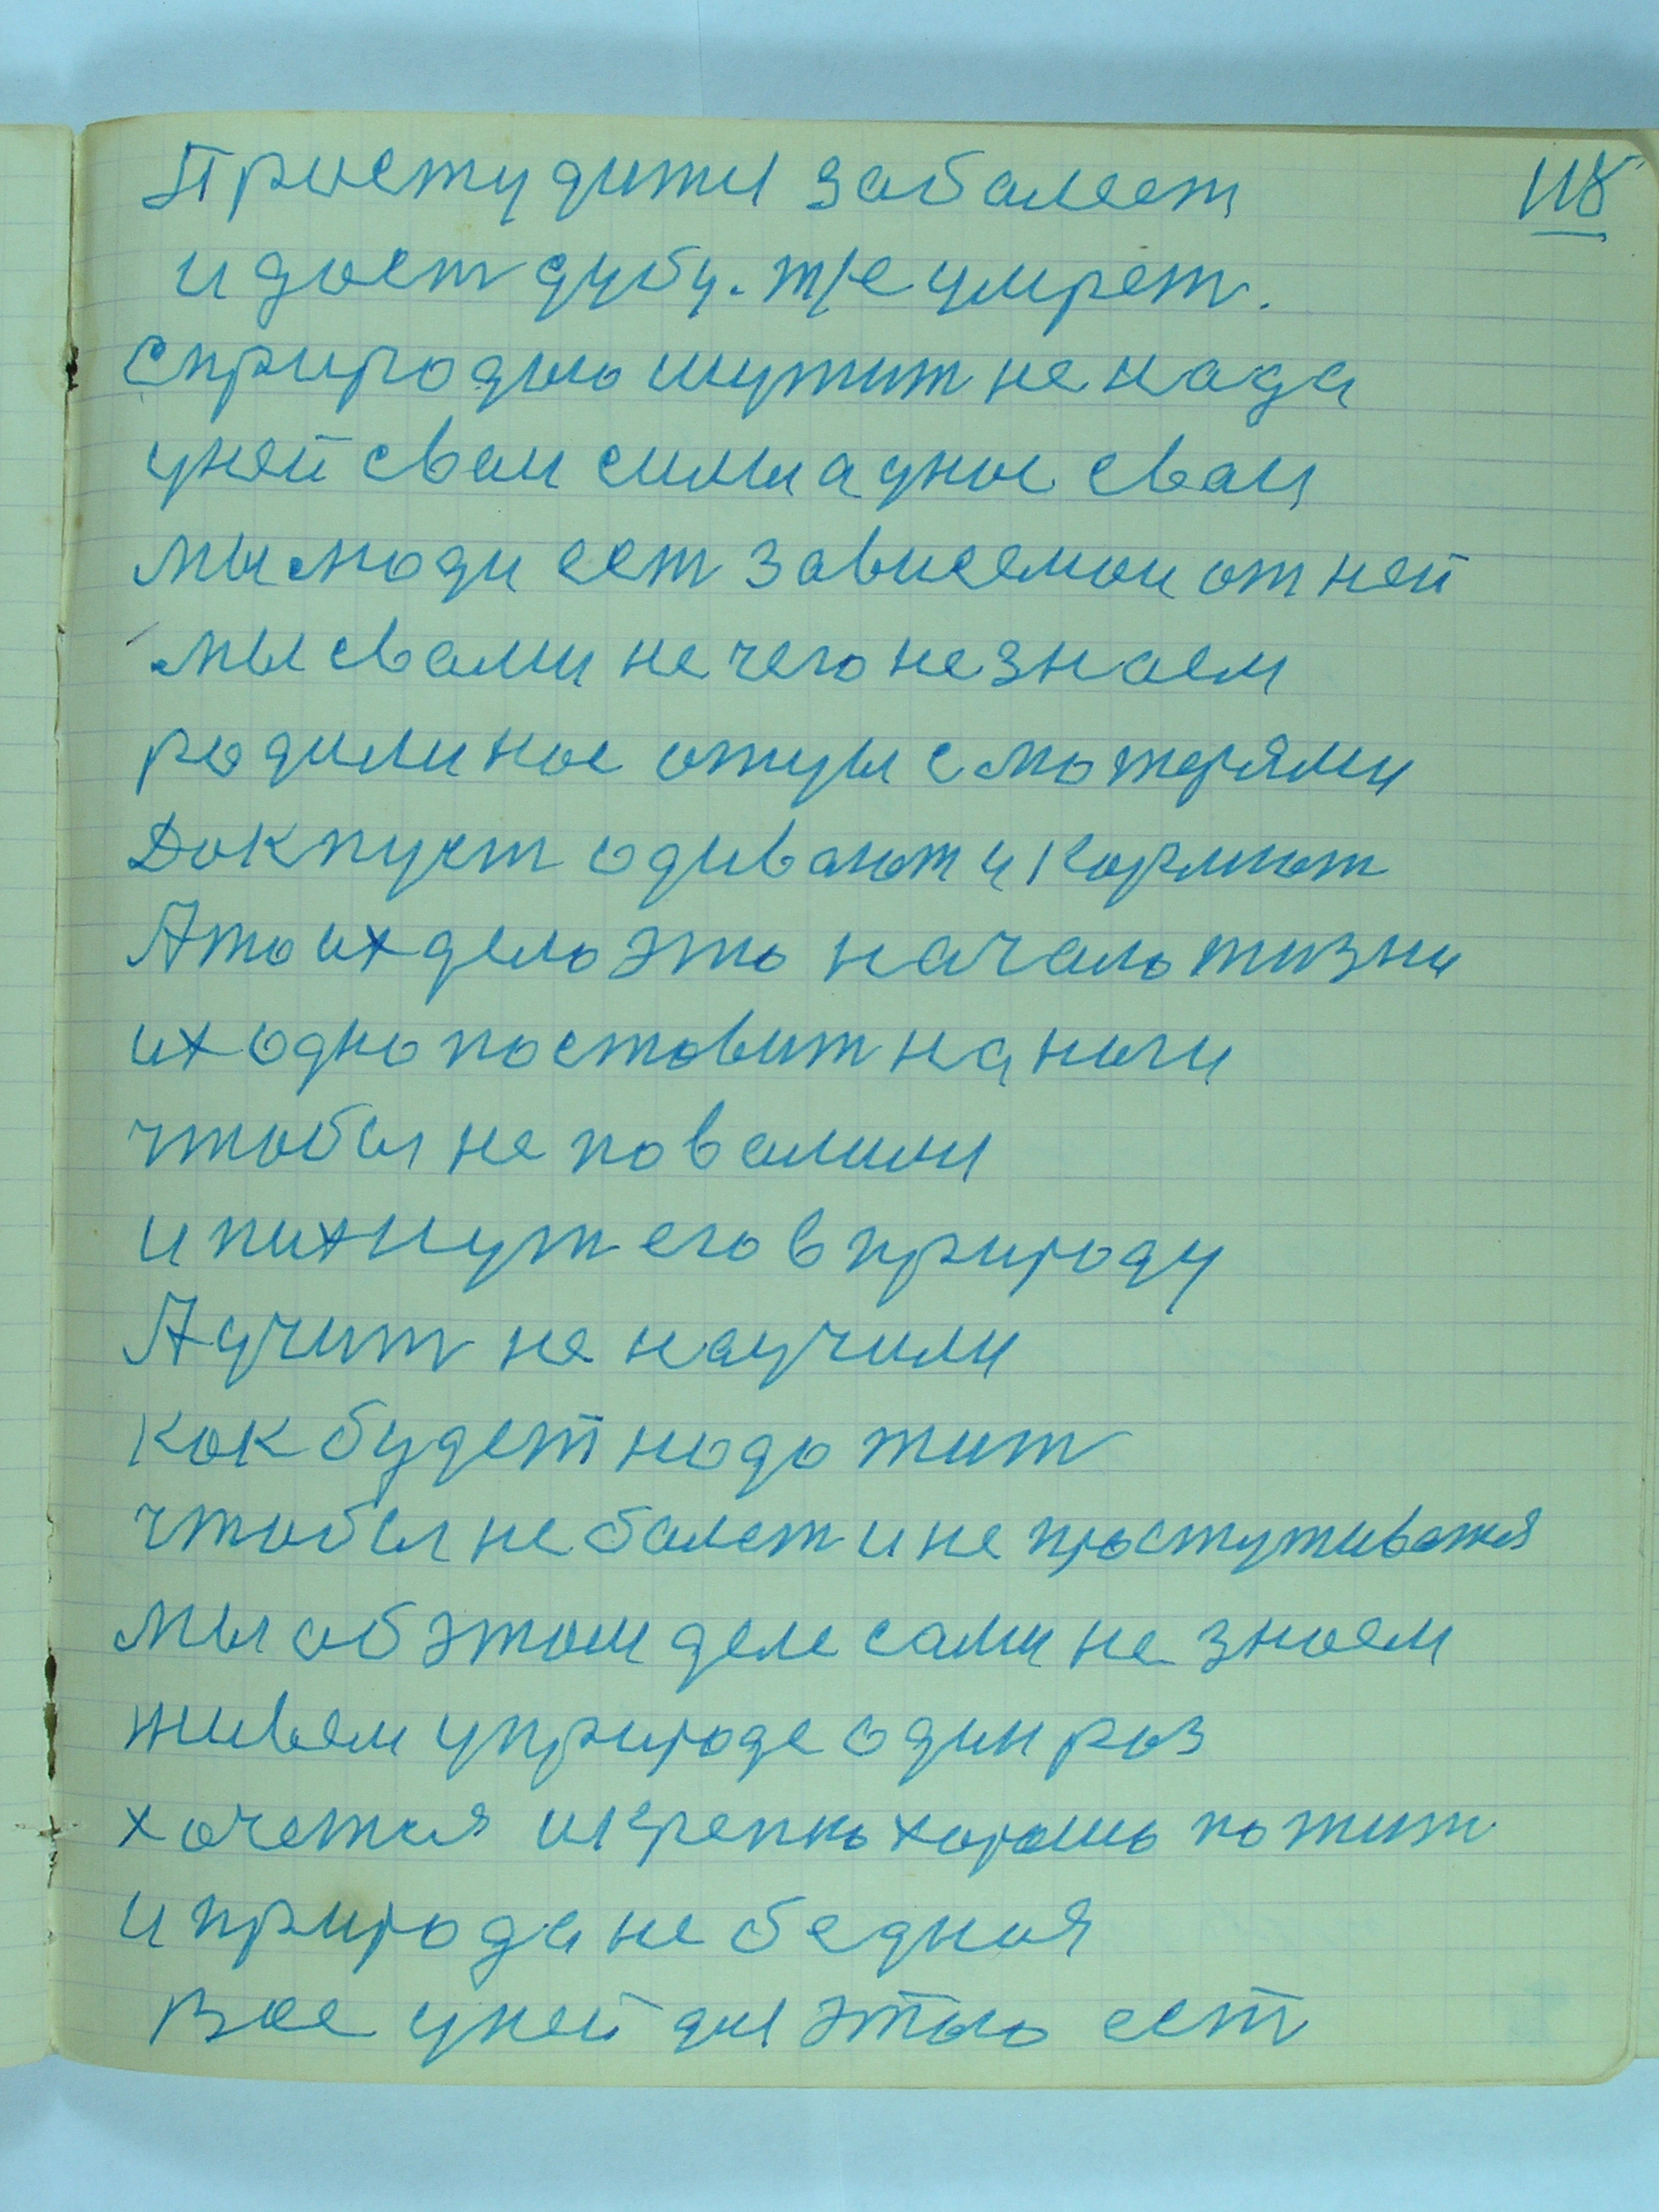 Простудиты забалеет 118
и даст дубу. т/е умрет.
с природыю шутит не нада
у ней сваи силы а у нас сваи
мы люди ест зависемаи от ней
мы с вами не чего не знаем
родили нас отцы с матерями
одивают и кормют
А то их дело это начало жизни
их одно поставит на ноги
чтобы не повалили
и пихнут его в природу
А учит не научили
как будет надо жит
чтобы не балет и не простуживатся
мы об этом деле сами не знаем
живем у природе один раз
хочетця и крепко хорошо пожит
и природа не бедная
все у ней для этого ест